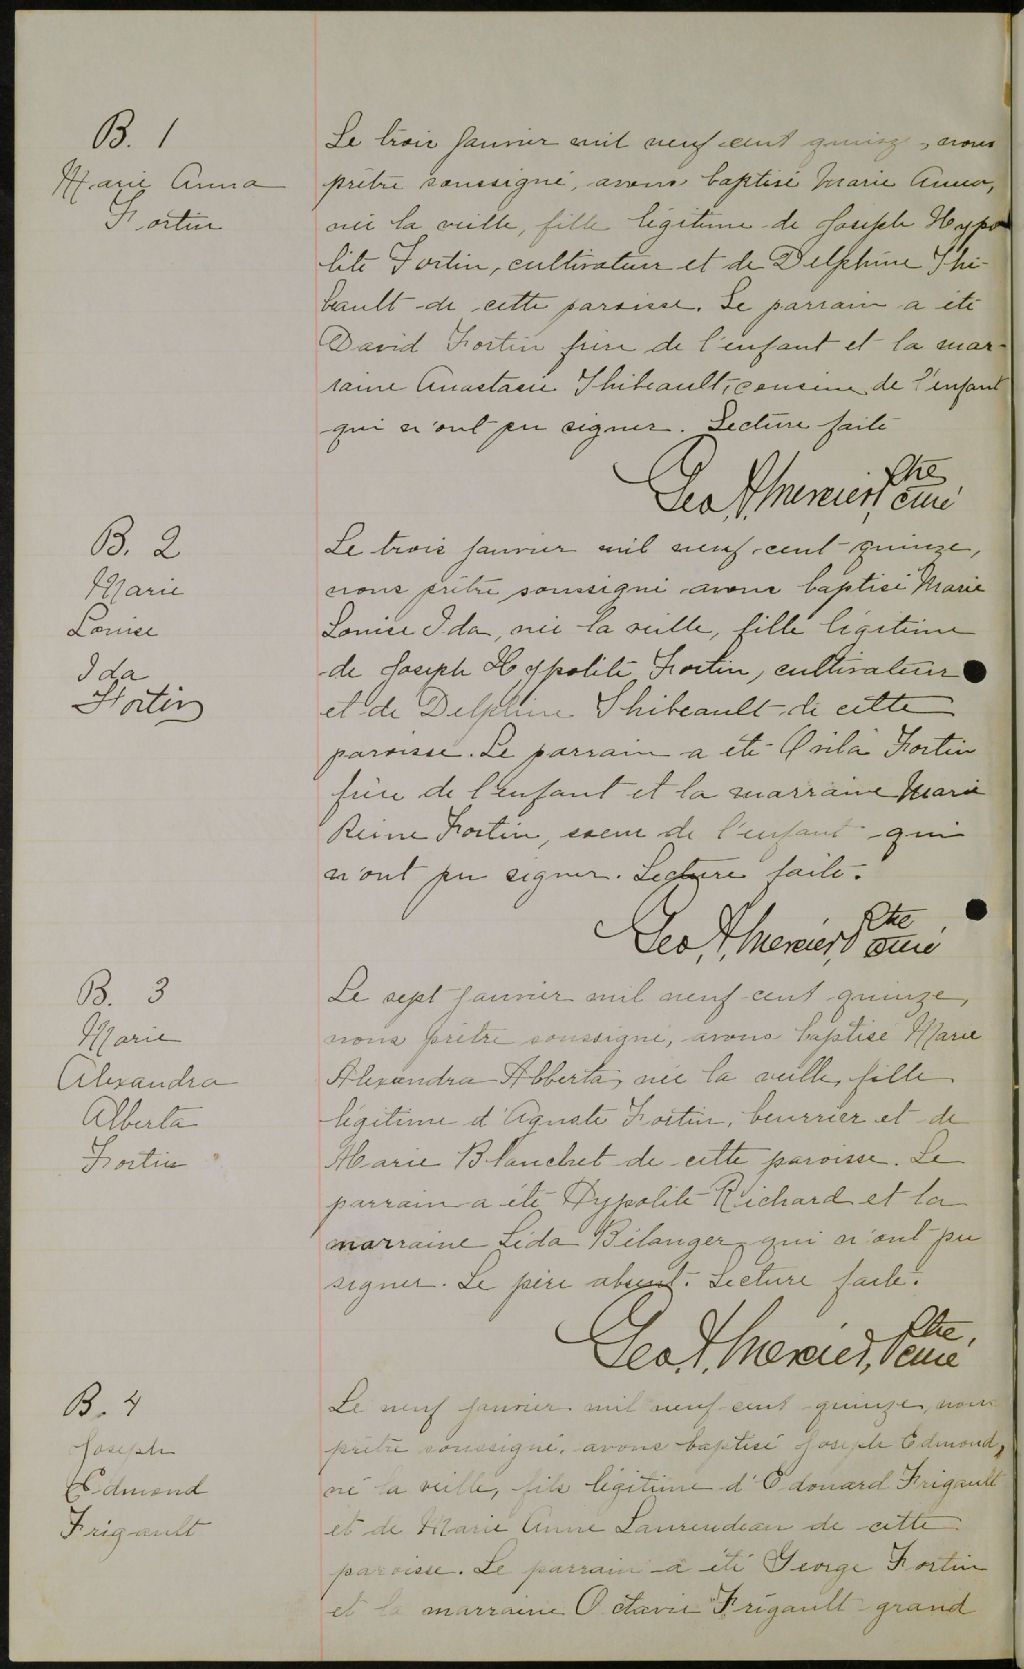 B. 1
Marie Anna
Fortin
Le trois janvier mil neuf cent quinze, nous
prêtre soussigné, avons baptisé Marie Anna,
née la veille, fille légitime de Joseph Hypo
lite Fortin, cultivateur et de Delphine Thi-
bault de cette paroisse. Le parrain a été
David Fortin frère de l'enfant et la mar-
raine Anastasie Thibeault, cousine de l'enfant
qui n'ont pu signer. Lecture faite
Geo. A. Mercier, Ptre
curé
B. 2
Marie
Louise
Ida
Fortin
Le trois janvier mil neuf cent quinze,
nous prêtre soussigné avons baptisé Marie
Louise Ida, née la veille, fille légitime
de Joseph Hypolite Fortin, cultivateur
et de Delphine Thibeault de cette
paroisse. Le parrain a été Ovila Fortin
frère de l'enfant et la marraine Marie
Reine Fortin, soeur de l'enfant qui
n'ont pu signer. Lecture faite.
Geo. A. Mercier, Ptre
curé
B. 3
Marie
Alexandra
Alberta
Fortin
Le sept janvier mil neuf cent quinze,
nous prêtre soussigné, avons baptisé Marie
Alexandra Abberta, née la veille, fille
légitime d'Aguste Fortin, beurrier et de
Marie Blanchet de cette paroisse. Le
parrain a été Hypolite Richard et la
marraine Léda Bélanger qui n'ont pu
signer. Le père absent. Lecture faite.
Geo. A. Mercier, Ptre,
curé
B. 4
Joseph
Edmond
Frigault
Le neuf janvier mil neuf cent quinze, nous
prêtre soussigné, avons baptisé Joseph Edmond,
né la veille, fils légitime d'Edouard Frigault
et de Marie Anne Laurendeau de cette
paroisse. Le parrain a été George Fortin
et la marraine Octavie Frigault grand